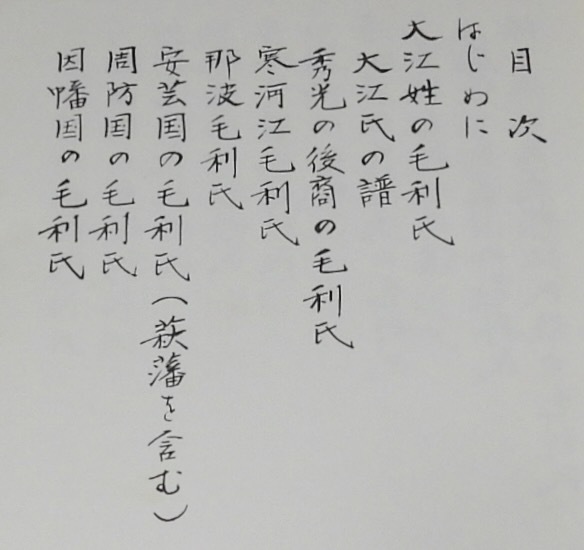 目次
はじめに
大江姓の毛利氏
大江氏の譜
秀光の後裔の毛利氏
寒河江毛利氏
那波毛利氏
安芸国の毛利氏(萩藩を含む)
周防国の毛利氏
因幡国の毛利氏